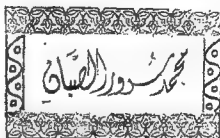 محمد سرور الصبان